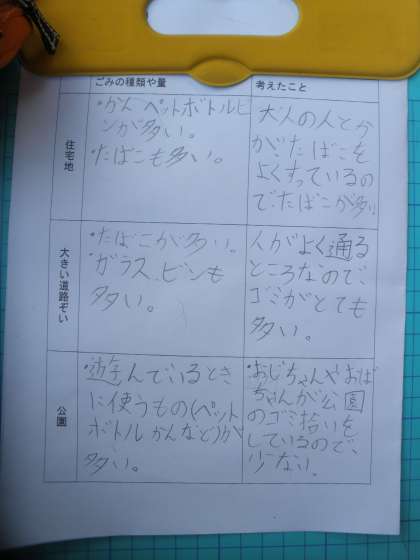 ごみの種類や量
考えたこと
住宅地
・かん ペットボトルビ
ンが多い。
・たばこも多い。
大人の人とか
が、たばこを
よくすっているの
で、たばこが多い
大きい道路ぞい
・たばこが多い。
ガラス、ビンも
多い。
人がよく通る
ところなので、
ゴミがとても
多い。
公園
・遊んでいるとき
に使うもの(ペット
ボトル かんなど)が
多い。
・おじちゃんやおば
ちゃんが公園
のゴミ拾いを
しているので、
少ない。